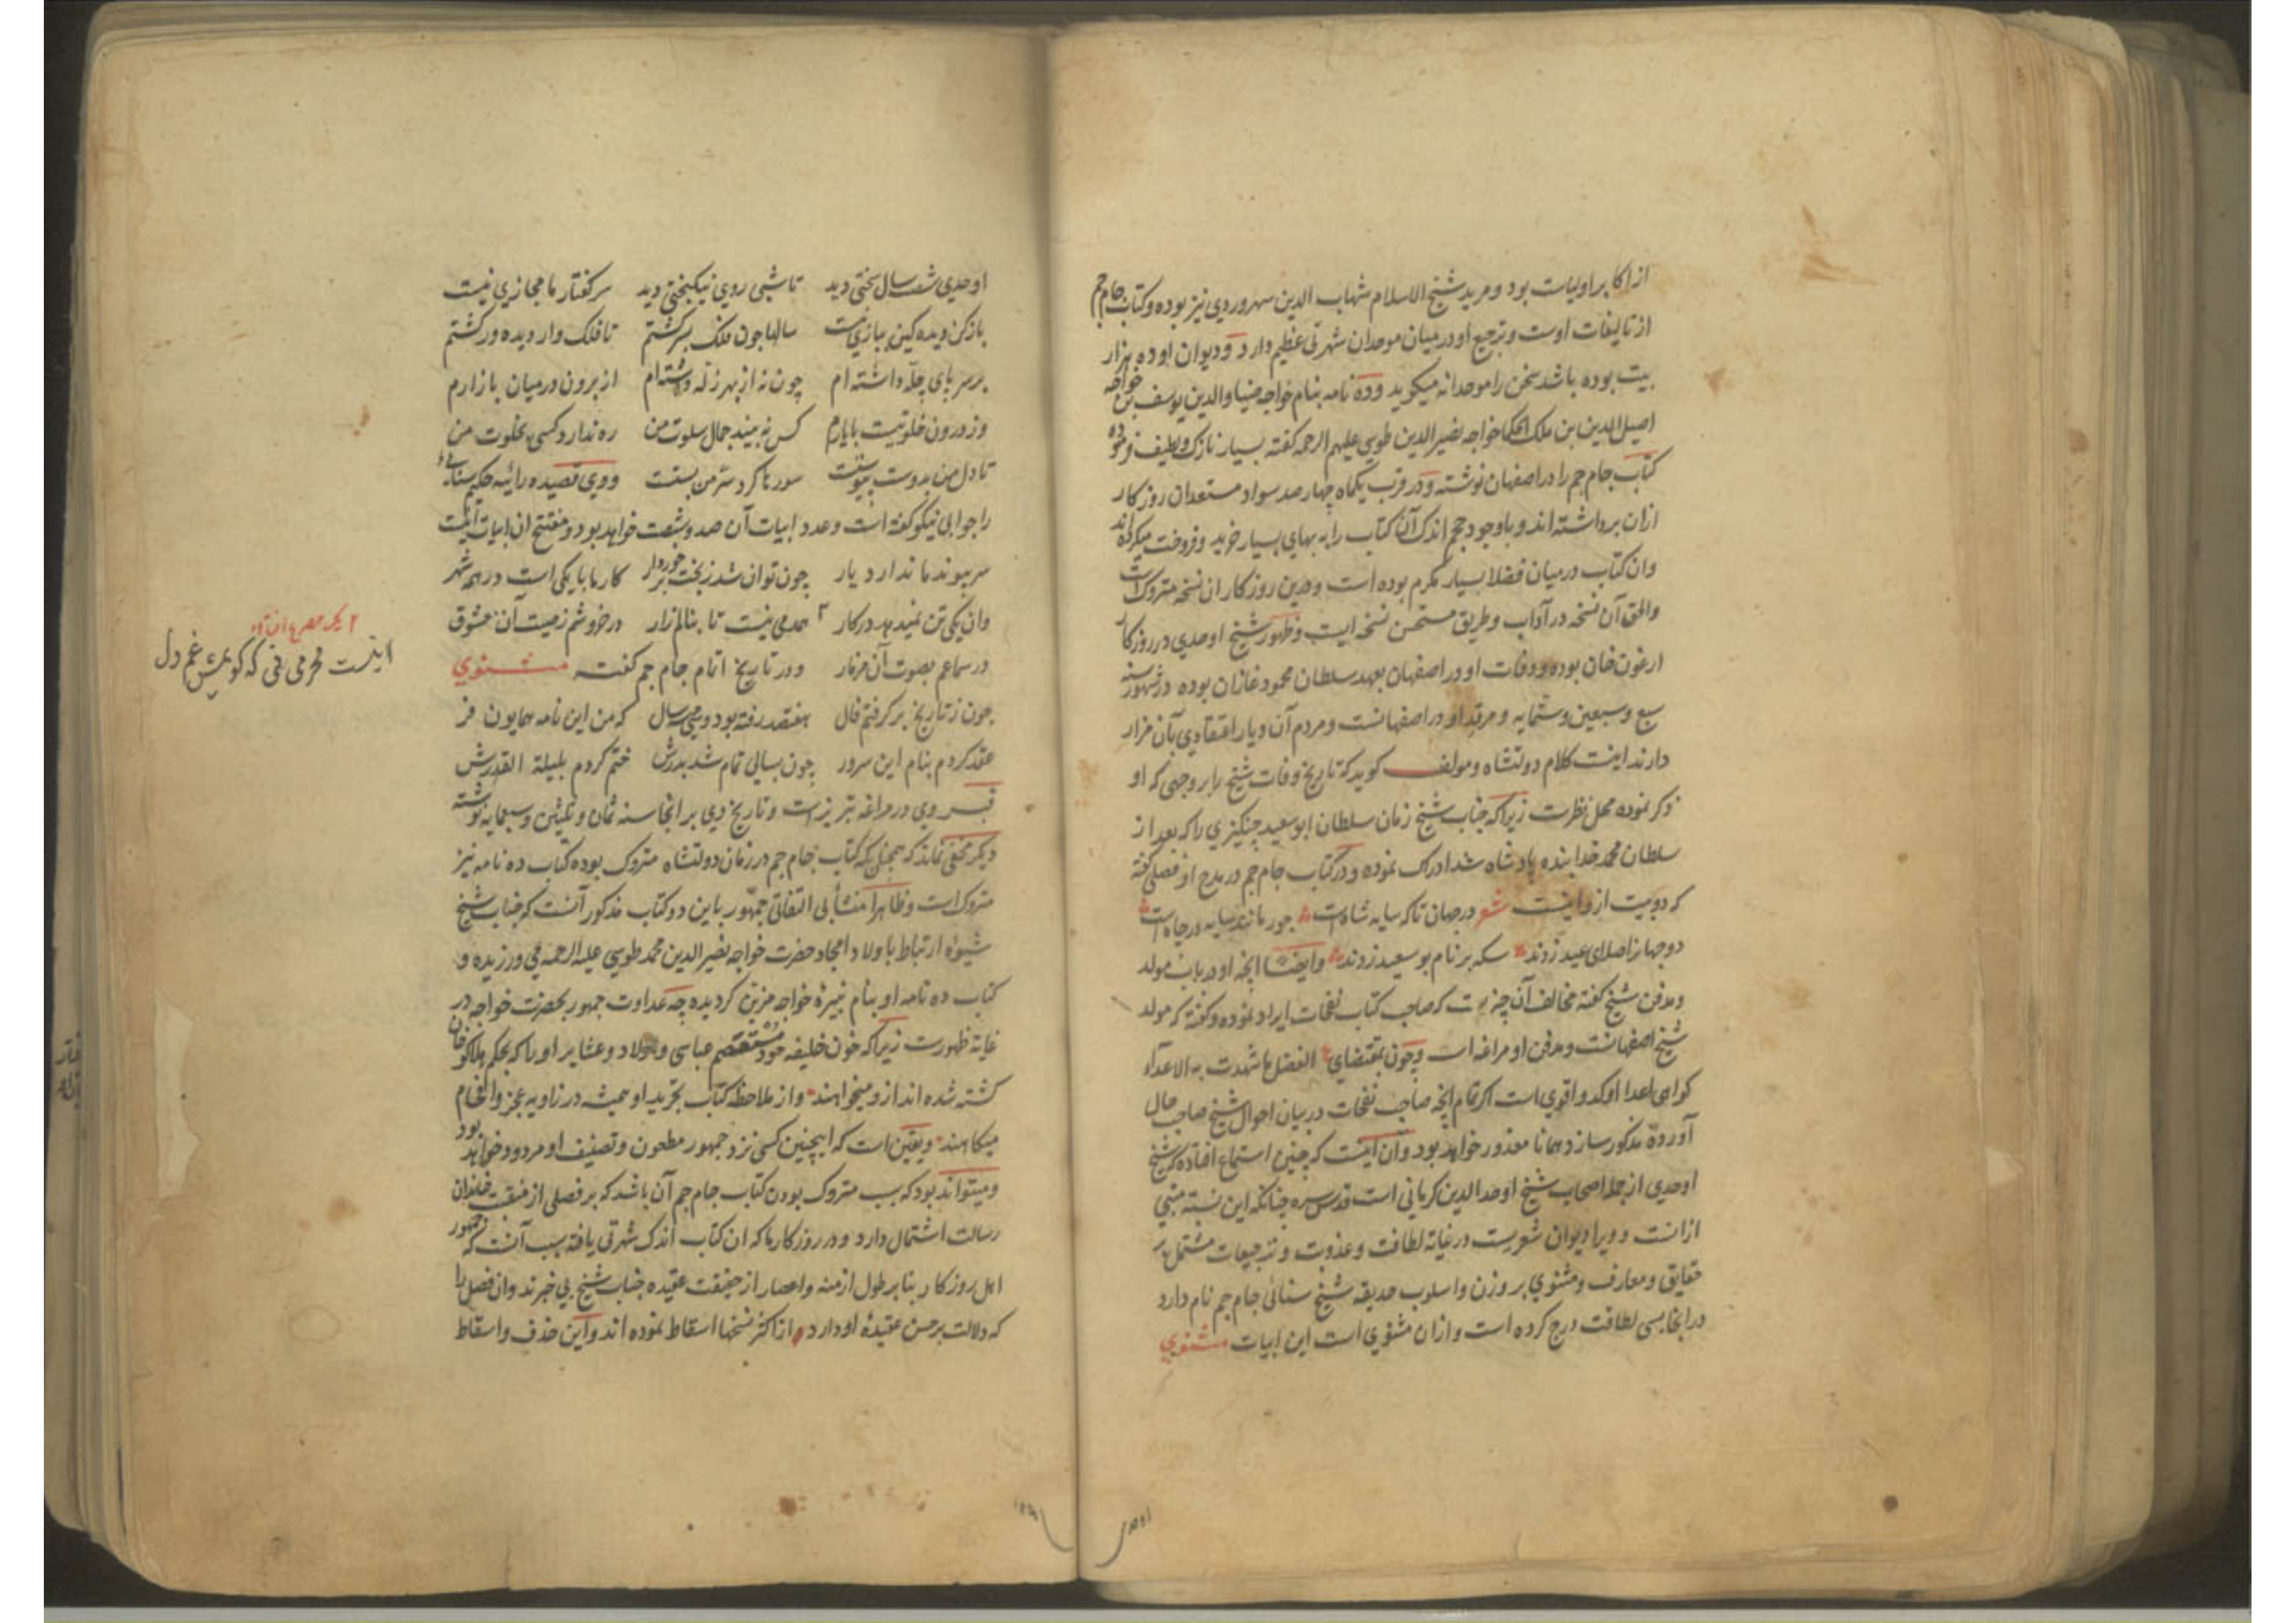 از اکابر اولیاست بود و مرید شیخ الاسلام شهاب الدین سهروردی نیز بوده و کتاب جام جم
از تالیفات اوست و ترجیع او در میان موحدان شهرتی عظیم دارد و دیوان او ده هزار
بیت بوده باشد سخن را موحدانه میکوید و ده نامه بنام خواجه ضیاء الدین یوسف بن خواجه
اصیل الدین بن ملک الحکما خواجه نصیر الدین طوسی علیهم الرحمه کفته بسیار نازک و لطیف فرموده
کتاب جام جم را در اصفهان نوشته و در قرب یکماه چهار صد سواد مستعدان روزکار
ازان برداشته اند و باوجود حجم اندک آن کتاب را به بهای بسیار خرید و فروخت میکرده اند
وان کتاب درمیان فضلا بسیار مکرم بوده است و درین روزکار ان نسخه متروک است
والحق آن نسخه در آداب و طریق مستحسن نسخه ایست و ظهور شیخ اوحدی در روزکار
ارغون خان بوده و وفات او در اصفهان بعهد سلطان محمود غازان بوده در شهور سنه
سبع و سبعین و ستمایه و مرقد او در اصفهانست و مردم آن دیار اعتقادی بآن مزار
دارند اینست کلام دولتشاه و مولف کوید که تاریخ وفات شیخ را بر وجهی که او
ذکر نموده محل نظرست زیرا که جناب شیخ زمان سلطان ابو سعید چنکیزی را که بعد از
سلطان محمد خدابنده پادشاه شد ادراک نموده و در کتاب جام جم در مدح او فصلی کفته
که دو بیت ازو اینست شعر در جهان تا که سایه شاه است جور مانند سایه در چاه است
دو جهان را صلای عید زدند سکه بر نام بوسعید زدند و ایضا انچه او در باب مولد
و مدفن شیخ کفته مخالف آن چیزیست که صاحب کتاب نفحات ایراد نموده و کفته که مولد
شیخ اصفهانست و مدفن او مراغه است و چون بمقتضای الفضل ما شهدت به الاعداء
کواهی اعدا اوکد و اقوی است اکر تمام انچه صاحب نفحات در بیان احوال شیخ صاحب حال
آورده مذکور سازد همانا معذور خواهد بود و آن اینست که چنین استماع افتاده که شیخ
اوحدی از جمله اصحاب شیخ اوحد الدین کرمانی است قدس سره چنانکه این نسبة مبنی
ازانست و ویرا دیوان شعریست در غایة لطافت و عذوبت و ترجیعات مشتمل بر
حقایق و معارف و مثنوی بر وزن و اسلوب حدیقه شیخ سنائی جام جم نام دارد
در انجا بسی لطافت درج کرده است و ازان مثنوی است این ابیات مثنوی
اوحدی شصت سال سختی دید تا شبی روی نیکبختی دید سر کفتار ما مجازی نیست
باز کن دیده کین ببازی نیست سالها چون فلک بسر کشتم تا فلک وار دیده ور کشتم
بر سر پای چله داشته ام چون نه از بهر زله داشته ام از برون درمیان بازارم
وز درون خلوتیست با یارم کس نه بیند جمال سلوت من ره ندارد کسی بخلوت من
تا دل من بدوست پیوست سورها کرد سر من بستت و وی قصیده رائیه حکیم سنائی
را جوابی نیکو کفته است و عدد ابیات آن صد و شصت خواهد بود و مفتتح ان ابیات اینست
سر پیوند ما ندارد یار چون توان شد ز بخت برخوردار کار ما با یکی است در همه شهر
وان یکی تن نمیدهد در کار ۲ همدمی نیست تا بنالم زار در خروشم ز صیت آن معشوق
در سماعم بصوت آن مزمار و در تاریخ اتمام جام جم کفته مثنوی
چون ز تاریخ بر کرفتم فال هفتصد رفته بود و سی سال که من این نامه همایون فر
عقد کردم بنام این سرور چون بسالی تمام شد بدرش ختم کردم بلیلة القدرش
قبر وی در مراغه تبریز است و تاریخ وی بر انجا سنه ثمان و ثلثین و سبعمایه نوشته
دیکر مخفی نماند که همچنانکه کتاب جام جم در زمان دولتشاه متروک بوده کتاب ده نامه نیز
متروک است و ظاهرا منشأ بی التفاتی جمهور باین دو کتاب مذکور آنست که جناب شیخ
شیوه ارتباط باولاد امجاد حضرت خواجه نصیر الدین محمد طوسی علیه الرحمه می ورزیده و
کتاب ده نامه او بنام نبیره خواجه مزین کردیده چه عداوت جمهور بحضرت خواجه در
غایة ظهورست زیرا که خون خلیفه خود مستعصم عباسی و اولاد و عشایر او را که بحکم هلاکو خان
کشته شده اند ازو میخواهند و از ملاحظه کتاب تجرید او همیشه در زاویه عجز و افحام
میکاهند و یقین است که اینچنین کسی نزد جمهور مطعون و تصنیف او مردود خواهد بود
و میتواند بود که سبب متروک بودن کتاب جام جم آن باشد که بر فصلی از منقبت خاندان
رسالت اشتمال دارد و در روزکار ما که ان کتاب اندک شهرتی یافته سبب آنست که جمهور
اهل روزکار بنابر طول ازمنه و اعصار از حقیقت عقیده جناب شیخ بی خبرند و ان فصل را
که دلالت بر حسن عقیده او دارد از اکثر نسخها اسقاط نموده اند و این حذف و اسقاط
۲ یک مصرع
نیست محرمی که کویمش غم دل